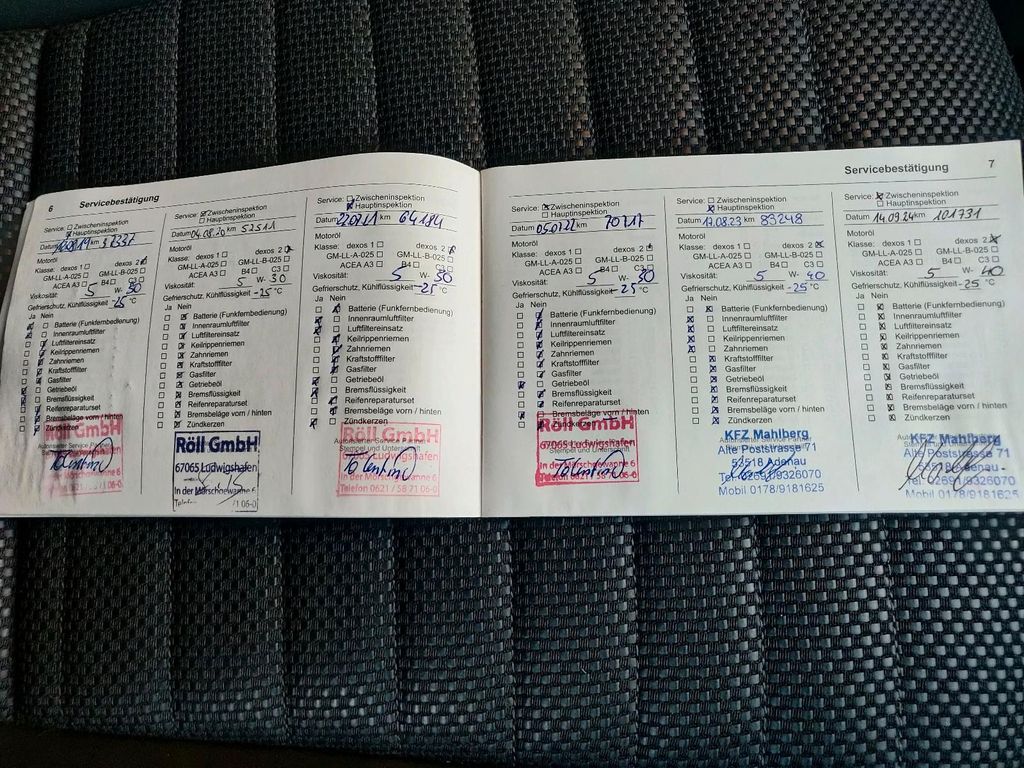 6 Servicebestätigung
Service: Zwischeninspektion
Hauptinspektion
Datum km
Motoröl
Klasse: dexos 1 dexos 2
GM-LL-A-025 GM-LL-B-025
ACEA A3 B4 C3
Viskosität: 5 W- 30
Gefrierschutz, Kühlflüssigkeit -25 °C
Ja Nein
Batterie (Funkfernbedienung)
Innenraumluftfilter
Luftfiltereinsatz
Keilrippenriemen
Zahnriemen
Kraftstofffilter
Gasfilter
Getriebeöl
Bremsflüssigkeit
Reifenreparaturset
Bremsbeläge vorn / hinten
Zündkerzen
Röll GmbH
Service: Zwischeninspektion
Hauptinspektion
Datum 04.08.20 km 52511
Motoröl
Klasse: dexos 1 dexos 2
GM-LL-A-025 GM-LL-B-025
ACEA A3 B4 C3
Viskosität: 5 W- 30
Gefrierschutz, Kühlflüssigkeit -25 °C
Ja Nein
Batterie (Funkfernbedienung)
Innenraumluftfilter
Luftfiltereinsatz
Keilrippenriemen
Zahnriemen
Kraftstofffilter
Gasfilter
Getriebeöl
Bremsflüssigkeit
Reifenreparaturset
Bremsbeläge vorn / hinten
Zündkerzen
Röll GmbH
67065 Ludwigshafen
In der Mörschgewanne 6
Service: Zwischeninspektion
Hauptinspektion
Datum km 64184
Motoröl
Klasse: dexos 1 dexos 2
GM-LL-A-025 GM-LL-B-025
ACEA A3 B4 C3
Viskosität: 5 W- 30
Gefrierschutz, Kühlflüssigkeit -25 °C
Ja Nein
Batterie (Funkfernbedienung)
Innenraumluftfilter
Luftfiltereinsatz
Keilrippenriemen
Zahnriemen
Kraftstofffilter
Gasfilter
Getriebeöl
Bremsflüssigkeit
Reifenreparaturset
Bremsbeläge vorn / hinten
Zündkerzen
Röll GmbH
Autorisierter Service Partner
Stempel und Unterschrift
Telefon 0621 / 58 71 06-0
Servicebestätigung 7
Service: Zwischeninspektion
Hauptinspektion
Datum 05.07.22 km 70717
Motoröl
Klasse: dexos 1 dexos 2
GM-LL-A-025 GM-LL-B-025
ACEA A3 B4 C3
Viskosität: 5 W- 30
Gefrierschutz, Kühlflüssigkeit -25 °C
Ja Nein
Batterie (Funkfernbedienung)
Innenraumluftfilter
Luftfiltereinsatz
Keilrippenriemen
Zahnriemen
Kraftstofffilter
Gasfilter
Getriebeöl
Bremsflüssigkeit
Reifenreparaturset
Bremsbeläge vorn / hinten
Zündkerzen
Röll GmbH
67065 Ludwigshafen
Service: Zwischeninspektion
Hauptinspektion
Datum 17.08.23 km 83248
Motoröl
Klasse: dexos 1 dexos 2
GM-LL-A-025 GM-LL-B-025
ACEA A3 B4 C3
Viskosität: 5 W- 40
Gefrierschutz, Kühlflüssigkeit -25 °C
Ja Nein
Batterie (Funkfernbedienung)
Innenraumluftfilter
Luftfiltereinsatz
Keilrippenriemen
Zahnriemen
Kraftstofffilter
Gasfilter
Getriebeöl
Bremsflüssigkeit
Reifenreparaturset
Bremsbeläge vorn / hinten
Zündkerzen
KFZ Mahlberg
Alte Poststrasse 71
53518 Adenau
Tel. 02691/9326070
Mobil 0178/9181625
Service: Zwischeninspektion
Hauptinspektion
Datum 14.09.24 km 101731
Motoröl
Klasse: dexos 1 dexos 2
GM-LL-A-025 GM-LL-B-025
ACEA A3 B4 C3
Viskosität: 5 W- 40
Gefrierschutz, Kühlflüssigkeit -25 °C
Ja Nein
Batterie (Funkfernbedienung)
Innenraumluftfilter
Luftfiltereinsatz
Keilrippenriemen
Zahnriemen
Kraftstofffilter
Gasfilter
Getriebeöl
Bremsflüssigkeit
Reifenreparaturset
Bremsbeläge vorn / hinten
Zündkerzen
KFZ Mahlberg
Alte Poststrasse 71
53518 Adenau
Tel. 02691/9326070
Mobil 0178/9181625